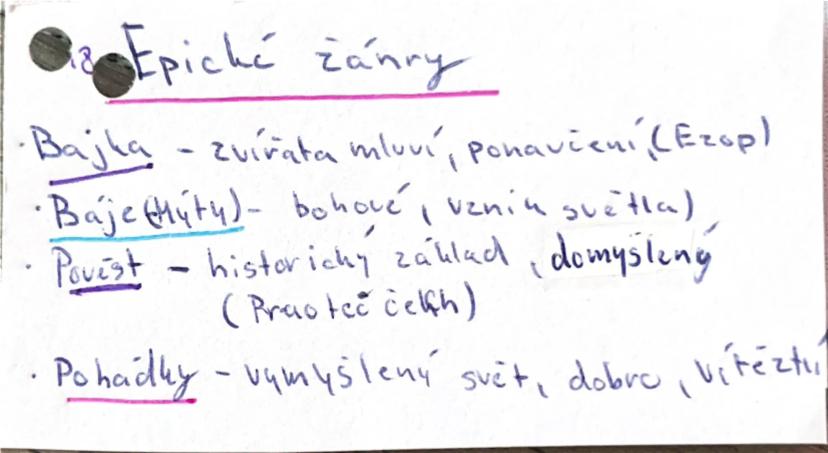 18 Epické žánry
· Bajka – zvířata mluví, ponaučení, (Ezop)
· Báje (Mýty) – bohové, vznik světla)
· Pověst – historický základ, domyšlený
(Praoteč čech)
· Pohádky – vymyšlený svět, dobro, vítěztví